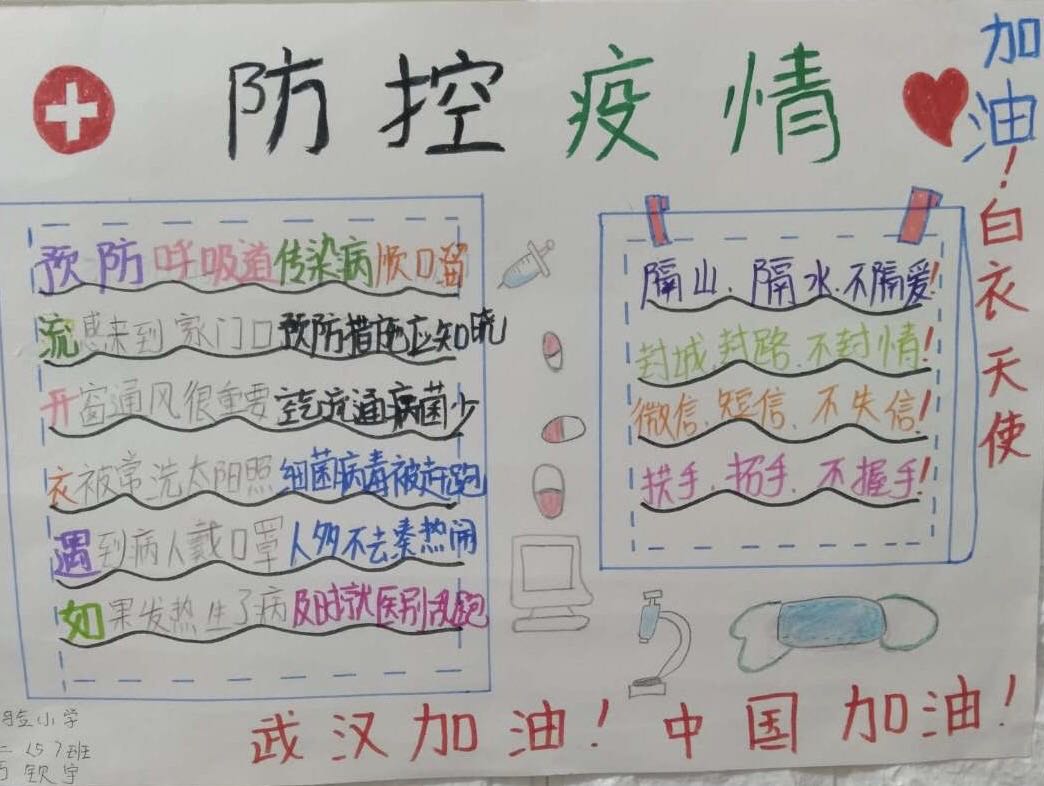 防控疫情
加油！白衣天使
预防呼吸道传染病顺口溜
流感来到家门口预防措施应知晓
开窗通风很重要空气流通病菌少
衣被常洗太阳照细菌病毒被赶跑
遇到病人戴口罩人多不去凑热闹
如果发热生了病及时就医别乱跑
隔山、隔水、不隔爱！
封城、封路、不封情！
微信、短信、不失信！
拱手、招手、不握手！
武汉加油！中国加油！
小学
二〈5〉班
钦宇